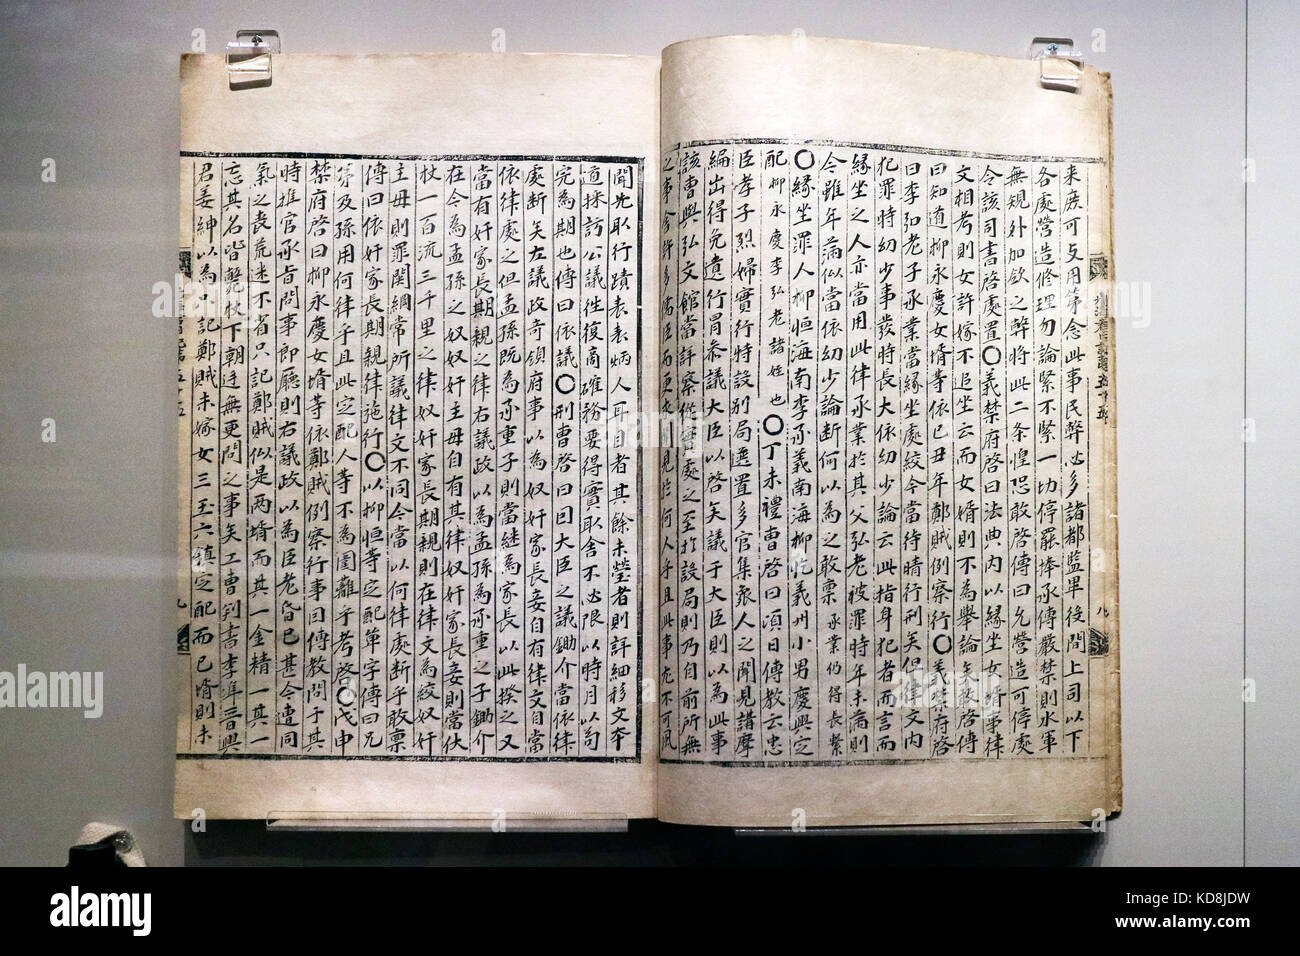 各處營造修理勿論緊不緊一切停罷捧承傳嚴禁則水軍
無規外加斂之弊將此二条惶恐敢啓傳曰允營造可停處
令該司書啓處置〇義禁府啓曰法典內以緣坐女婿事律
文相考則女許嫁不追坐云而女婿則不為舉論矣敢啓傳
曰知道柳永慶女婿等依己丑年鄭賊例察行〇義禁府啓
曰李弘老子承業當緣坐處絞今當待時行刑矣但律文內
犯罪時幼少事發時長大依幼少論云此指身犯者而言而
緣坐之人亦當用此律承業於其父弘老被罪時年未滿則
今雖年滿似當依幼少論斷何以為之敢稟承業仍得長繫
〇緣坐罪人柳恒海南李承義南海柳忔義州小男慶興定
配柳永慶李弘老諸姪也〇丁未禮曹啓曰頃日傳教云忠
臣孝子烈婦實行特設別局選置多官集衆人之聞見諸摩
編出得免遺行冐叅議大臣以啓矣議于大臣則以為此事
該曹與弘文館當詳察從實處之至於設局則乃自前所無
聞先取行蹟表表炳人耳目者其餘未瑩者則詳細移文本
道採訪公議徃復商確務要得實取舍不必限以時月以苟
完為期也傳曰依議〇刑曹啓曰因大臣之議鋤介當依律
處斷矣左議政奇領府事以為奴奸家長妾自有律文自當
依律處之但孟孫既為承重子則當継為家長以此揆之又
當有奸家長期親之律右議政以為孟孫為承重之子鋤介
在今為孟孫之奴奴奸主母自有其律奴奸家長妾則當伏
杖一百流三千里之律奴奸家長期親則在律文為絞奴奸
主母則罪関綱常所議律文不同今當以何律處斷乎敢稟
傳曰依奸家長期親律施行〇以柳恒等定配單字傳曰兄
弟及孫用何律乎且此定配人等不為圍籬乎考啓〇戊申
禁府啓曰柳永慶女婿等依鄭賊例察行事因傳教問于其
時推官承旨問事郎廳則右議政以為臣老昏已甚今遭同
氣之喪荒迷不省只記鄭賊似是两婿而其一金精一其一
忘其名皆斃杖下朝廷無更問之事矣工曹判書李
君姜紳以為只記鄭賊未嫁女三玉六鎮定配而已婿則未
alamy
Image ID: KD8JDW
www.alamy.com